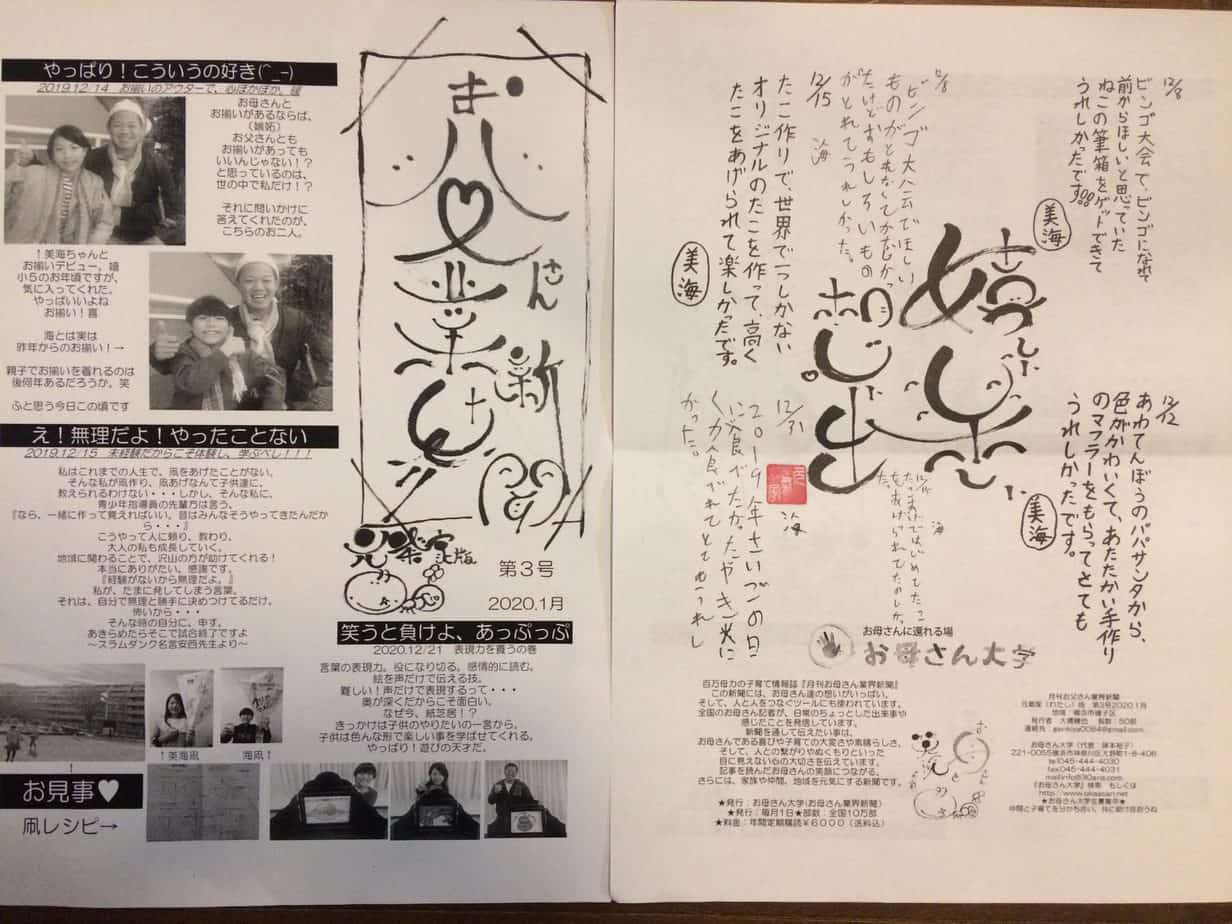 やっぱり！こういうの好き(^_-)
2019.12.14 お揃いのアウターで、心ぽかぽか、暖
お母さんと
お揃いがあるならば、
（嫉妬）
お父さんとも
お揃いがあっても
いいんじゃない！？
と思っているのは、
世の中で私だけ！？
それに問いかけに
答えてくれたのが、
こちらのお二人。
↑美海ちゃんと
お揃いデビュー。嬉
小５のお年頃ですが、
気に入ってくれた。
やっぱいいよね
お揃い！喜
海とは実は
昨年からのお揃い！→
親子でお揃いを着れるのは
後何年あるだろうか。笑
ふと思う今日この頃です
え！無理だよ！やったことない
2019.12.15 未経験だからこそ体験し、学ぶべし！！！
私はこれまでの人生で、凧をあげたことがない。
そんな私が凧作り、凧あげなんて子供達に、
教えられるわけない・・・しかし、そんな私に、
青少年指導員の先輩方は言う、
『なら、一緒に作って覚えればいい、昔はみんなそうやってきたんだか
ら・・・』
こうやって人に頼り、教わり、
大人の私も成長していく。
地域に関わることで、沢山の方が助けてくれる！
本当にありがたい。感謝です。
『経験がないから無理だよ。』
私が、たまに発してしまう言葉。
それは、自分で無理と勝手に決めつけてるだけ。
怖いから・・・
そんな時の自分に、申す。
あきらめたらそこで試合終了ですよ
～スラムダンク名言安西先生より～
↑美海凧
海凧↑
お見事♥
凧レシピ→
お父さん
業界
新聞
第３号
2020.1月
笑うと負けよ、あっぷっぷ
2020.12/21 表現力を養うの巻
言葉の表現力。役になり切る。感情的に読む。
絵を声だけで伝える技。
難しい！声だけで表現するって・・・
奥が深くだからこそ面白い。
なぜ今、紙芝居！？
きっかけは子供のやりたいの一言から。
子供は色んな形で楽しい事を学ばせてくれる。
やっぱり！遊びの天才だ。
12/8
ビンゴ大会で、ビンゴになれて
前からほしいと思っていた
ねこの筆箱をゲットできて
うれしかったです!!
美海
12/8
ビンゴ大会でほしい
ものがとれなくてかなしかっ
たけどおもしろいもの
がとれてうれしかった。
海
12/15
たこ作りで、世界で一つしかない
オリジナルのたこを作って、高く
たこをあげられて楽しかったです。
美海
12/12
あわてんぼうのパパサンタから、
色がかわいくて、あたたかい手作り
のマフラーをもらってとても
うれしかったです。
美海
海
12/31
2019年さいごの日
海
お母さんに還れる場
お母さん大学
百万母力の子育て情報誌『月刊お母さん業界新聞』
この新聞には、お母さん達の想いがいっぱい。
そして、人と人をつなぐツールにも使われています。
全国のお母さん記者が、日常のちょっとした出来事や
感じたことを発信しています。
新聞を通して伝えたい事は、
お母さんである喜びや子育ての大変さや素晴らしさ、
そして、人との繋がりやぬくもりといった
目に見えない心の大切さを伝えています。
記事を読んだお母さんの笑顔につながる。
さらには、家族や仲間、地域を元気にする新聞です。
★発行：お母さん大学(お母さん業界新聞)
★発行：毎月１日★部数：全国10万部
★料金：年間定期購読￥６０００（送料込）
月刊お父さん業界新聞
第3号2020.1月
地域：横浜市磯子区
発行者 大橋
部数：50部
お母さん大学（代表 藤本裕子）
tel045-444-4030
fax045-444-4031
『お母さん大学』検索 もしくは
http://www.okaasan.net
★お母さん大学生募集中★
仲間と子育てを分かち合い、共に助け合おうね